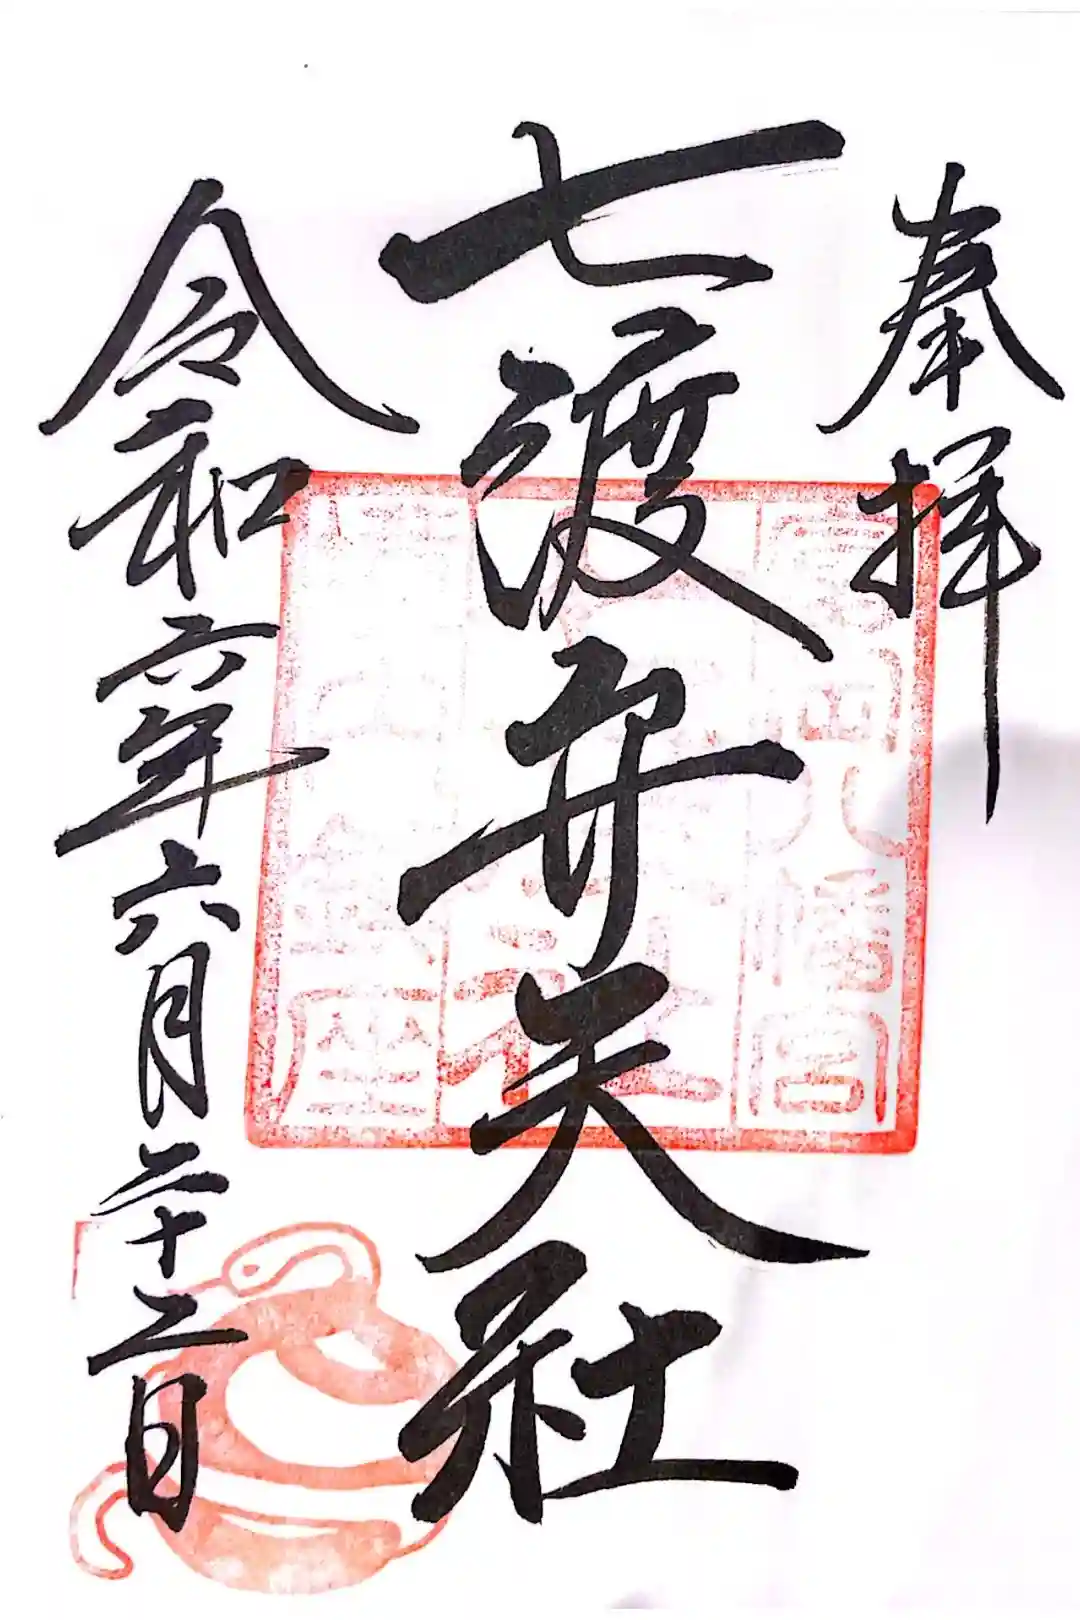 奉拝
七渡弁天社
令和六年六月二十二日
八幡宮